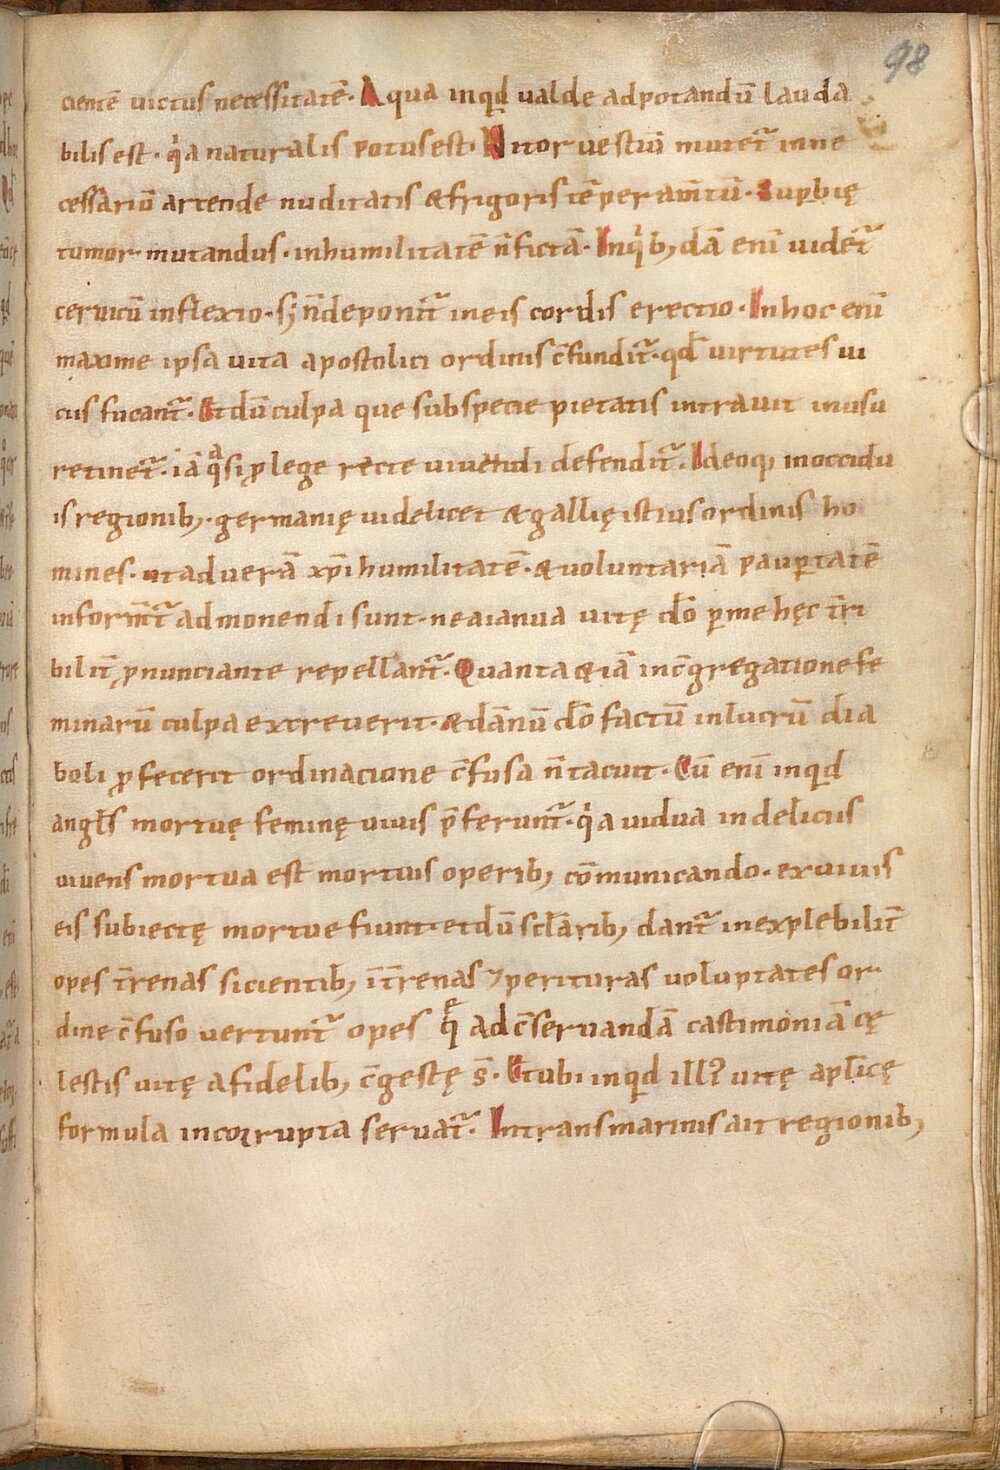 98
cientē uictus necessitatē. Aqua inqd ualde adpotandū lauda
bilis est. qia naturalis potus est. Nitor uestiū mutet̄ inne
cessariū artende nuditatis &frigoris tēperam̄tū. Supbię
tumor mutandus. inhumilitatē n̄fictā. Inqib; dā enī uidet̄
ceruicū inflexio. sȝ n̄deponit̄ ineis cordis erectio. Inhoc enī
maxime ipsa uita apostolici ordinis c̄fundit̄. qd̄ uirtutes ui
ciis fucant̄. Et dū culpa que subspecie pietatis intrauit inusu
retinet̄. iā qasi ꝓlege recte uiuendi defendit̄. Ideoq; inoccidu
is regionib;. germanię uidelicet &gallię istius ordinis ho
mines. ut aduerā xp̄i humilitatē. &uoluntariā paup̱tatē
inform̄t̄ admonendi sunt. neaianua uitę do̅ p̱me hęc t̄ri
bilit̄ ꝓnunciante repellant̄. Quanta &iā inc̄gregatione fe
minarū culpa extreuerit. &dānū do̅ factū inlucrū dia
boli ꝓfecerit ordinacione c̄fusa n̄tacuit. Cū enī inqd
angl̄s mortuę feminę uiuis p̄ferunt̄. qia uidua indeliciis
uiuens mortua est mortuis operib; cōmunicando. exuiuis
eis subiectę mortue fiunt. et dū scl̄arib; dant̄ inexplebilit̄
opes t̄renas sicientib; īt̄renas ⁊perituras uoluptates or
dine c̄fuso uertunt̄ opes qę ad c̄seruandā castimoniā cę
lestis uitę afidelib; c̄gestę s̄. Et ubi inqd ill̉ uitę apl̄icę
formula incorrupta seruat̄. Intransmarinis ait regionib;